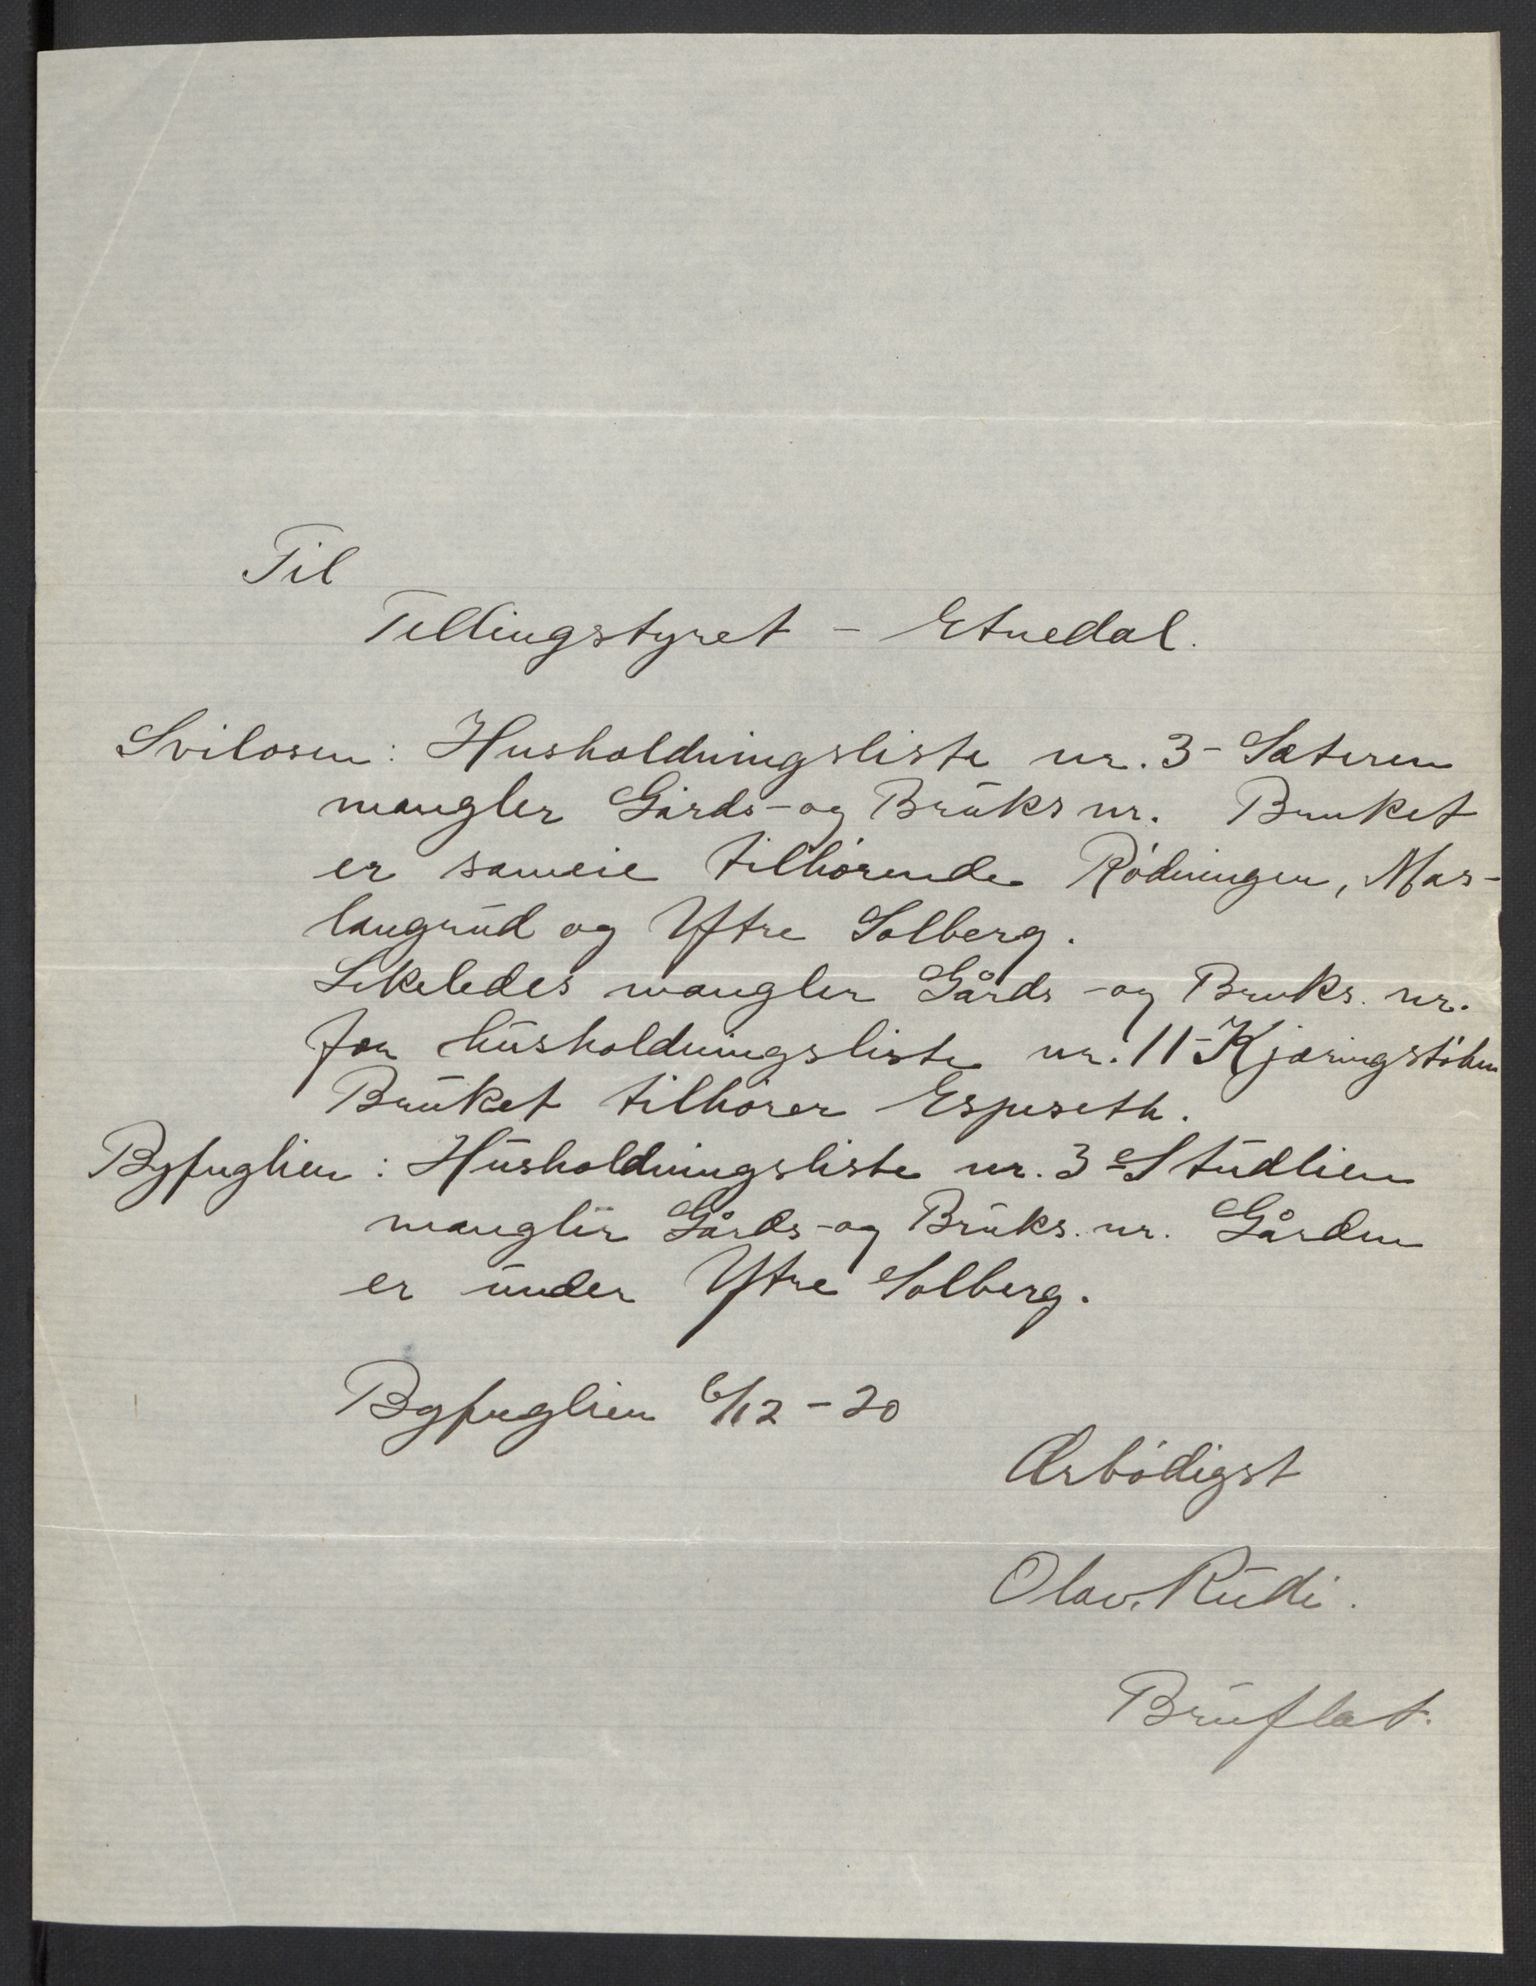 Til
Tellingstyret - Etnedal.
Svilosen: Husholdningsliste nr. 3 - Sæteren
mangler Gårds- og Bruks nr. Bruket
er sameie tilhørende Rødningen, Mas-
langrud og Ytre Solberg.
Likeledes mangler Gårds - og Bruks. nr.
for husholdningsliste nr. 11 - Kjæringstølen
Bruket tilhører Espeseth.
Bygfuglien: Husholdningsliste nr. 3 - Studlien
mangler Gårds- og Bruks. nr. Gården
er under Ytre Solberg.
Bygfuglien 6/12 - 20
Ærbødigst
Olav. Rudi.
Bruflat.